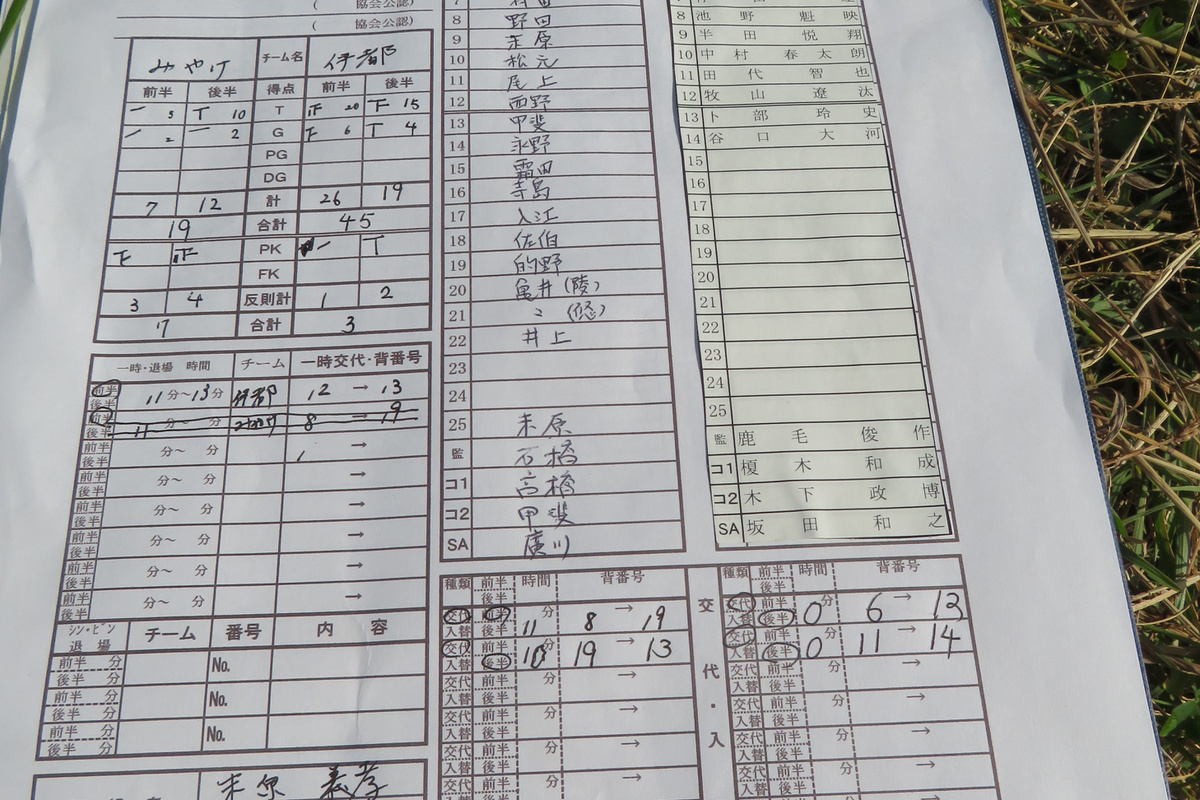 ( 協会公認)
( 協会公認)
みやけ チーム名 伊都
前半 後半 得点 前半 後半
一 5 T 10 T 正 20 下 15
一 2 一 2 G 下 6 T 4
PG
DG
7 12 計 26 19
19 合計 45
下 正 PK 一 T
FK
3 4 反則計 1 2
7 合計 3
一時・退場 時間 チーム 一時交代・背番号
前半 後半 11分~13分 伊都 12 → 13
前半 後半 11分~ 分 8 → 19
前半 後半 分~ 分 →
前半 後半 分~ 分 →
前半 後半 分~ 分 →
前半 後半 分~ 分 →
前半 後半 分~ 分 →
前半 後半 分~ 分 →
シン・ビン 退場 チーム 番号 内 容
前半 分 後半 分 No.
前半 分 後半 分 No.
前半 分 後半 分 No.
7
8 野田
9
10 松元
11 尾上
12 西野
13 甲斐
14 永野
15 霜田
16 寺島
17 入江
18 佐伯
19 的野
20 亀井(陵)
21 〃 (悠)
22 井上
23
24
25 末原
監 石橋
コ1 高橋
コ2 甲斐
SA 廣川
8 池野 魁映
9 半田 悦翔
10 中村 春太朗
11 田代 智也
12 牧山 遼汰
13 卜部 玲史
14 谷口 大河
15
16
17
18
19
20
21
22
23
24
25
監 鹿毛 俊作
コ1 榎木 和成
コ2 木下 政博
SA 坂田 和之
種類 前半 後半 時間 背番号
交代 入替 前半 後半 11分 8 → 19
交代 入替 前半 後半 10分 19 → 13
交代 入替 前半 後半 分 →
交代 入替 前半 後半 分 →
交代 入替 前半 後半 分 →
交代 前半 分 →
交代・入
種類 前半 後半 時間 背番号
交代 入替 前半 後半 0分 6 → 13
交代 入替 前半 後半 0分 11 → 14
交代 入替 前半 後半 分 →
交代 入替 前半 後半 分 →
交代 入替 前半 後半 分 →
交代 入替 前半 後半 分 →
末原 義孝